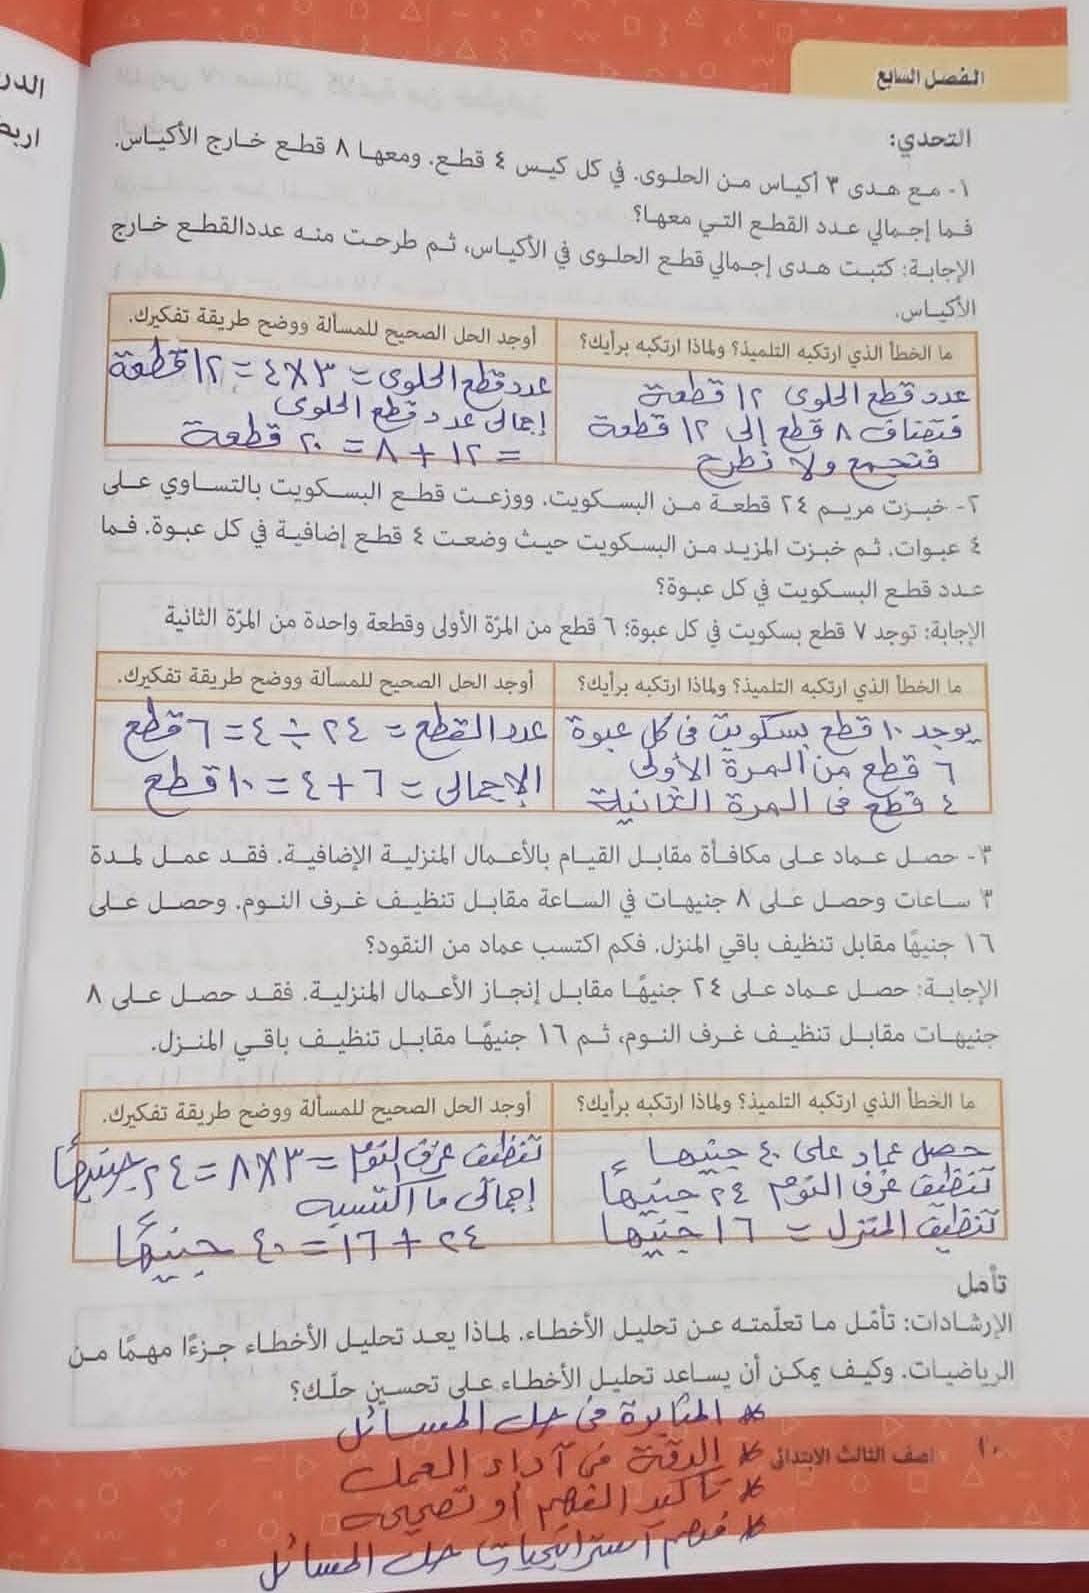 الفصل السابع
الدر
اربط
التحدي:
١- مع هدى ٣ أكياس من الحلوى. في كل كيس ٤ قطع. ومعها ٨ قطع خارج الأكياس.
فما إجمالي عدد القطع التي معها؟
الإجابة: كتبت هدى إجمالي قطع الحلوى في الأكياس، ثم طرحت منه عددالقطع خارج
الأكياس.
ما الخطأ الذي ارتكبه التلميذ؟ ولماذا ارتكبه برأيك؟
أوجد الحل الصحيح للمسألة ووضح طريقة تفكيرك.
عدد قطع الحلوى ١٢ قطعة
فتضاف ٨ قطع إلى ١٢ قطعة
فتجمع ولا نطرح
عدد قطع الحلوى = ٣ × ٤ = ١٢ قطعة
إجمالى عدد قطع الحلوى
= ١٢ + ٨ = ٢٠ قطعة
٢- خبزت مريم ٢٤ قطعة من البسكويت. ووزعت قطع البسكويت بالتساوي على
٤ عبوات. ثم خبزت المزيد من البسكويت حيث وضعت ٤ قطع إضافية في كل عبوة. فما
عدد قطع البسكويت في كل عبوة؟
الإجابة: توجد ٧ قطع بسكويت في كل عبوة؛ ٦ قطع من المرّة الأولى وقطعة واحدة من المرّة الثانية
ما الخطأ الذي ارتكبه التلميذ؟ ولماذا ارتكبه برأيك؟
أوجد الحل الصحيح للمسألة ووضح طريقة تفكيرك.
يوجد ١٠ قطع بسكويت فى كل عبوة
٦ قطع من المرة الأولى
٤ قطع فى المرة الثانية
عدد القطع = ٢٤ ÷ ٤ = ٦ قطع
الإجمالى = ٦ + ٤ = ١٠ قطع
٣- حصل عماد على مكافأة مقابل القيام بالأعمال المنزلية الإضافية. فقد عمل لمدة
٣ ساعات وحصل على ٨ جنيهات في الساعة مقابل تنظيف غرف النوم. وحصل على
١٦ جنيهًا مقابل تنظيف باقي المنزل. فكم اكتسب عماد من النقود؟
الإجابة: حصل عماد على ٢٤ جنيهًا مقابل إنجاز الأعمال المنزلية. فقد حصل على ٨
جنيهات مقابل تنظيف غرف النوم، ثم ١٦ جنيهًا مقابل تنظيف باقي المنزل.
ما الخطأ الذي ارتكبه التلميذ؟ ولماذا ارتكبه برأيك؟
أوجد الحل الصحيح للمسألة ووضح طريقة تفكيرك.
حصل عماد على ٤٠ جنيها
تنظيف غرف النوم ٢٤ جنيهاً
تنظيف المنزل = ١٦ جنيها
تنظيف غرف النوم = ٣ × ٨ = ٢٤ جنيهاً
إجمالى ما اكتسبه
٢٤ + ١٦ = ٤٠ جنيهاً
تأمل
الإرشادات: تأمّل ما تعلّمته عن تحليل الأخطاء. لماذا يعد تحليل الأخطاء جزءًا مهمًا من
الرياضيات. وكيف يمكن أن يساعد تحليل الأخطاء على تحسين حلّك؟
* المثابرة فى حل المسائل
١٠ الصف الثالث الابتدائى
* الدقة فى آداء العمل
* تأكيد الفهم أو تصحيحه
* فهم استراتيجيات حل المسائل